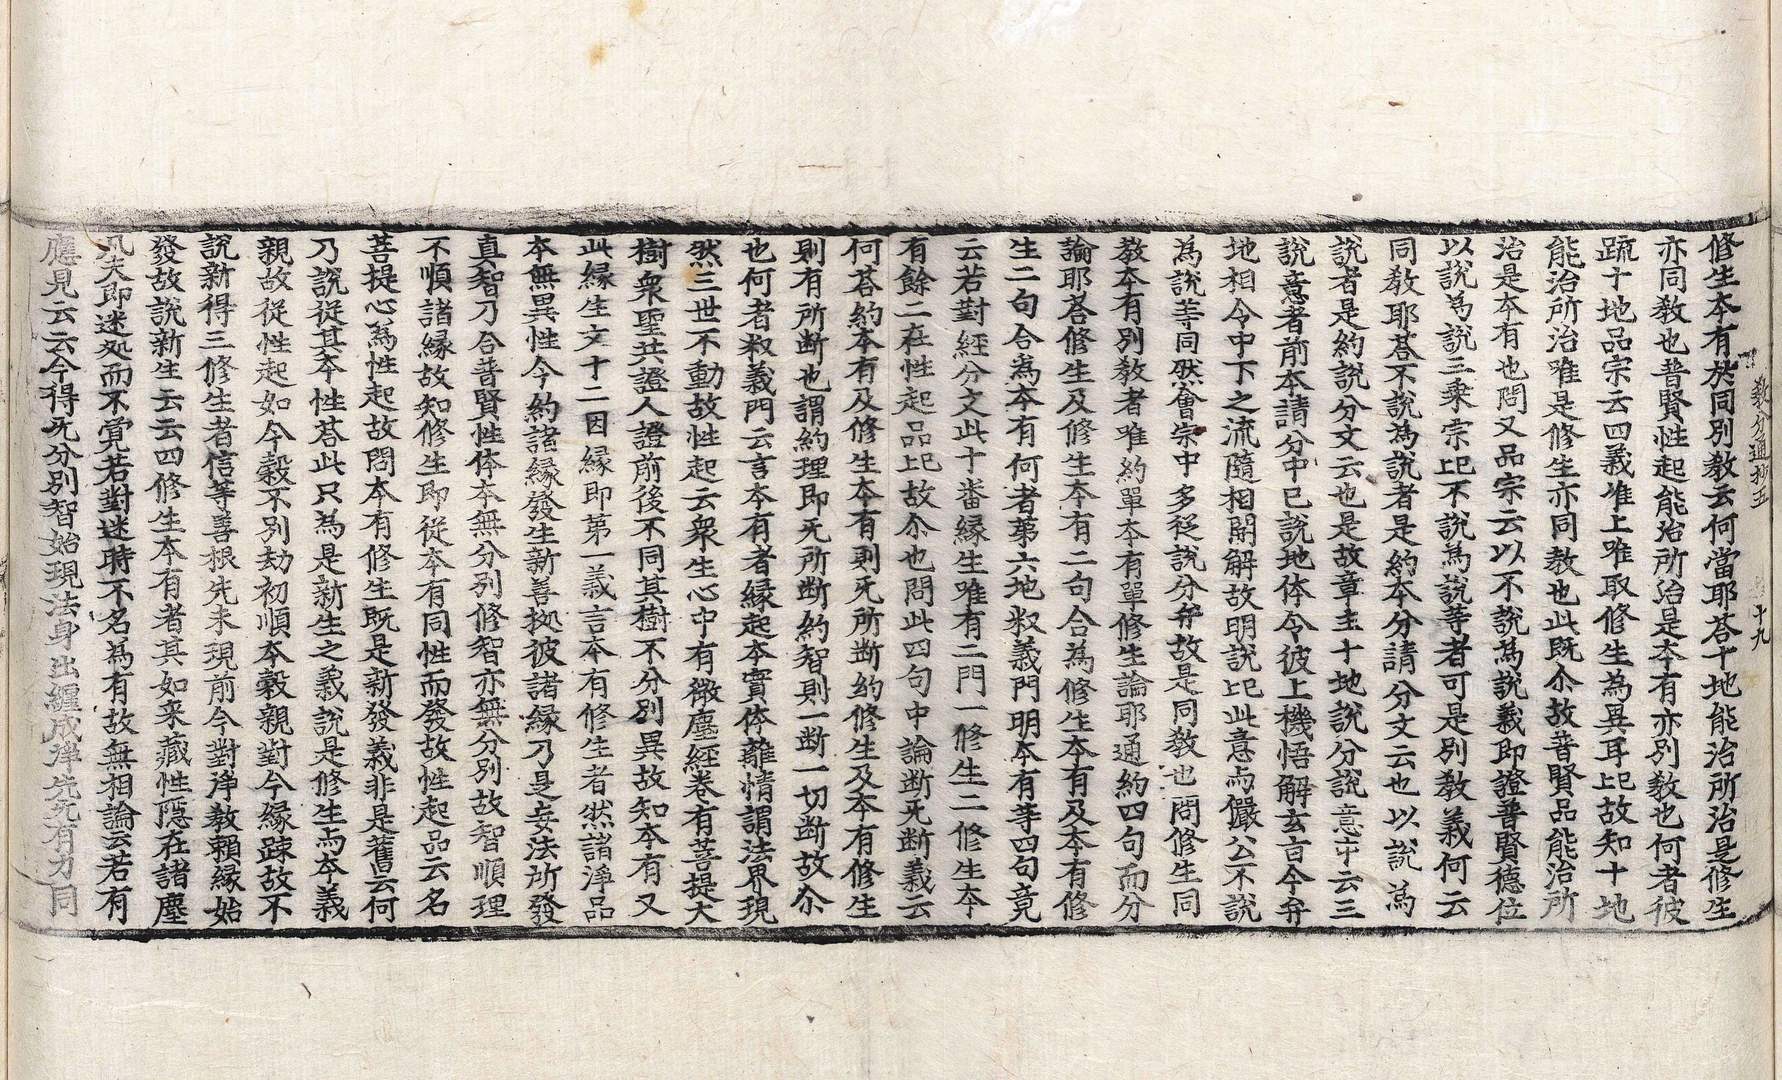 教分通抄五　十九
修生本有於同別敎云何當耶荅十地能治所治是修生
亦同敎也普賢性起能治所治是本有亦別敎也何者彼
䟽十地品宗云四義准上唯取修生為異耳上已故知十地
能治所治唯是修生亦同敎也此既尒故普賢品能治所
治是本有也問又品宗云以不說為說義即證普賢德位
以說為說三乘宗上已不說為說等者可是別敎義何云
同敎耶荅不說為說者是約本分請分文云也以說為
說者是約說分文云也是故章主十地說分說意中云三
說意者前本請分中已說地体今彼上機悟解玄言今弁
地相令中下之流隨相開解故明說上已此意与儼公不說
為說等同然會宗中多從說分弁故是同敎也問修生同
敎本有別敎者唯約單本有單修生論耶通約四句而分
論耶荅修生及修生本有二句合為修生本有及本有修
生二句合為本有何者第六地釈義門明本有等四句竟
云若對經分文此十番縁生唯有二門一修生二修生本
有餘二在性起品上已故尒也問此四句中論断无断義云
何荅約本有及修生本有則无所断約修生及本有修生
則有所断也謂約理即无所断約智則一断一切断故尒
也何者釈義門云言本有者縁起本實体離情謂法界現
然三世不動故性起云衆生心中有微塵經卷有菩提大
樹衆聖共證人證前後不同其樹不分別異故知本有又
此縁生文十二因縁即第一義言本有修生者然諸淨品
本無異性今約諸縁發生新善㨿彼諸縁乃是妄法所發
真智乃合普賢性体本無分別修智亦無分別故智順理
不順諸縁故知修生即從本有同性而發故性起品云名
菩提心為性起故問本有修生既是新發義非是舊云何
乃說從其本性荅此只為是新生之義說是修生与本義
親故從性起如今穀不別劫初順本穀親對今縁踈故不
說新得三修生者信等善根先未現前今對淨敎賴縁始
發故說新生云云四修生本有者其如来藏性隱在諸塵
凡夫即迷処而不覚若對迷時不名為有故無相論云若有
應見云云今得无分別智始現法身出纏成淨先无有力同